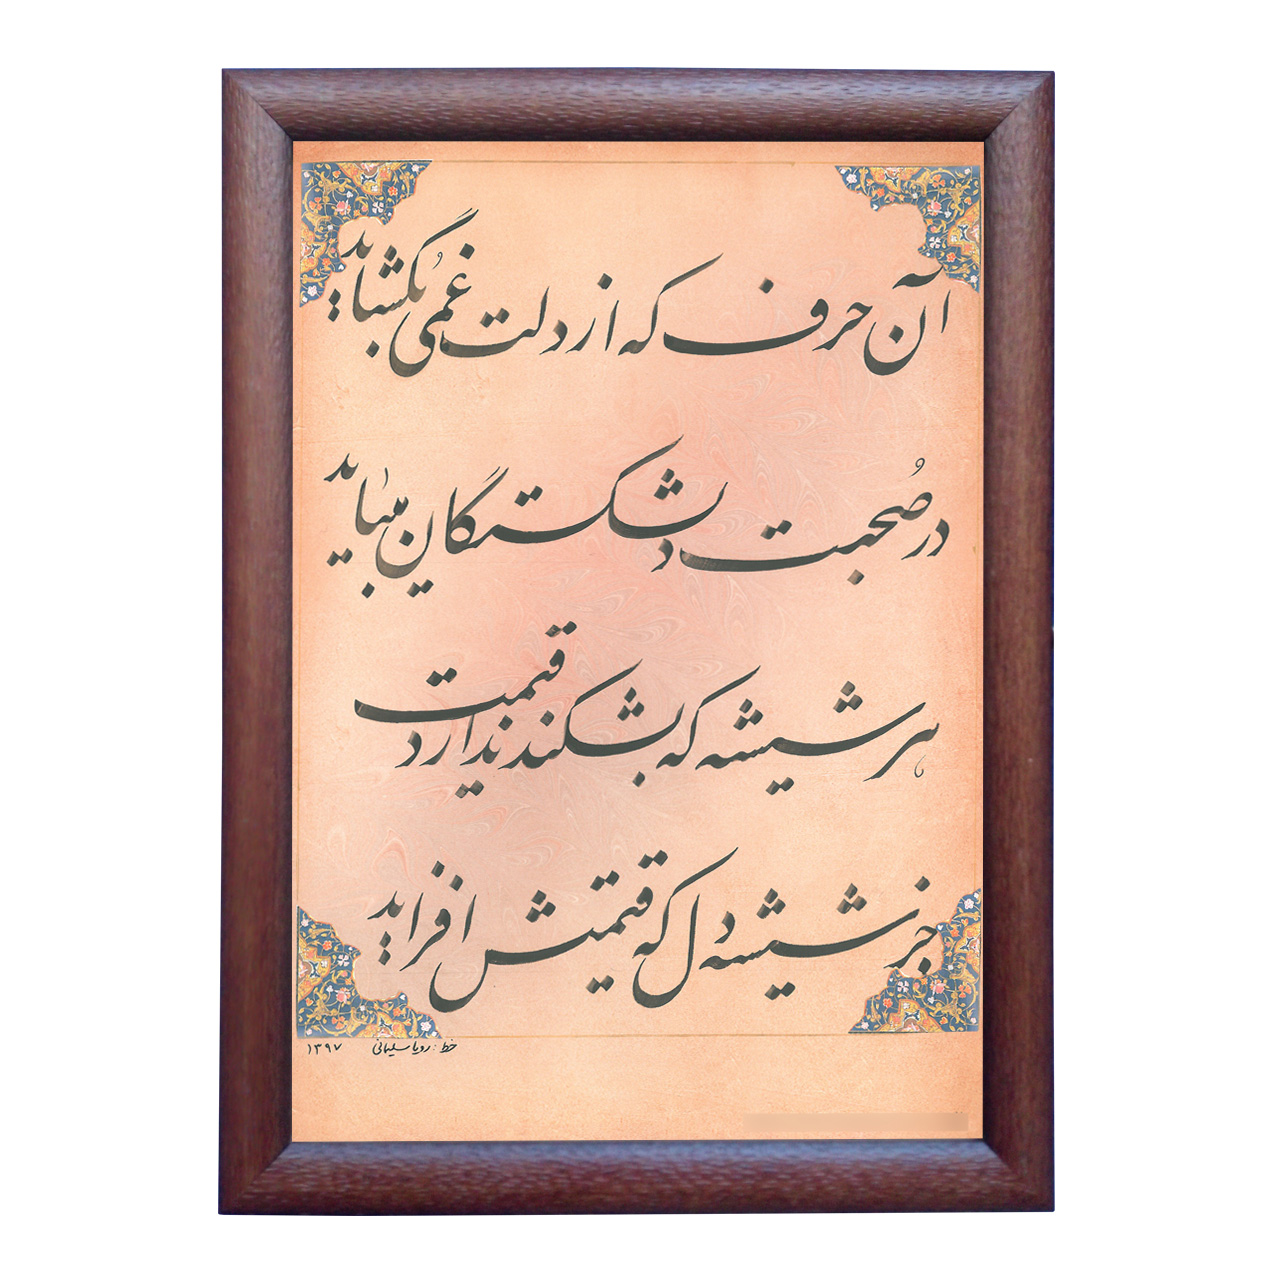 آن حرف که از دلت غمی بگشاید
در صُحبت دلشکستگان میباید
هر شیشه که بشکند ندارد قیمت
جز شیشه دل که قیمتش افزاید
خط : رویا سلیمانی ۱۳۹۷